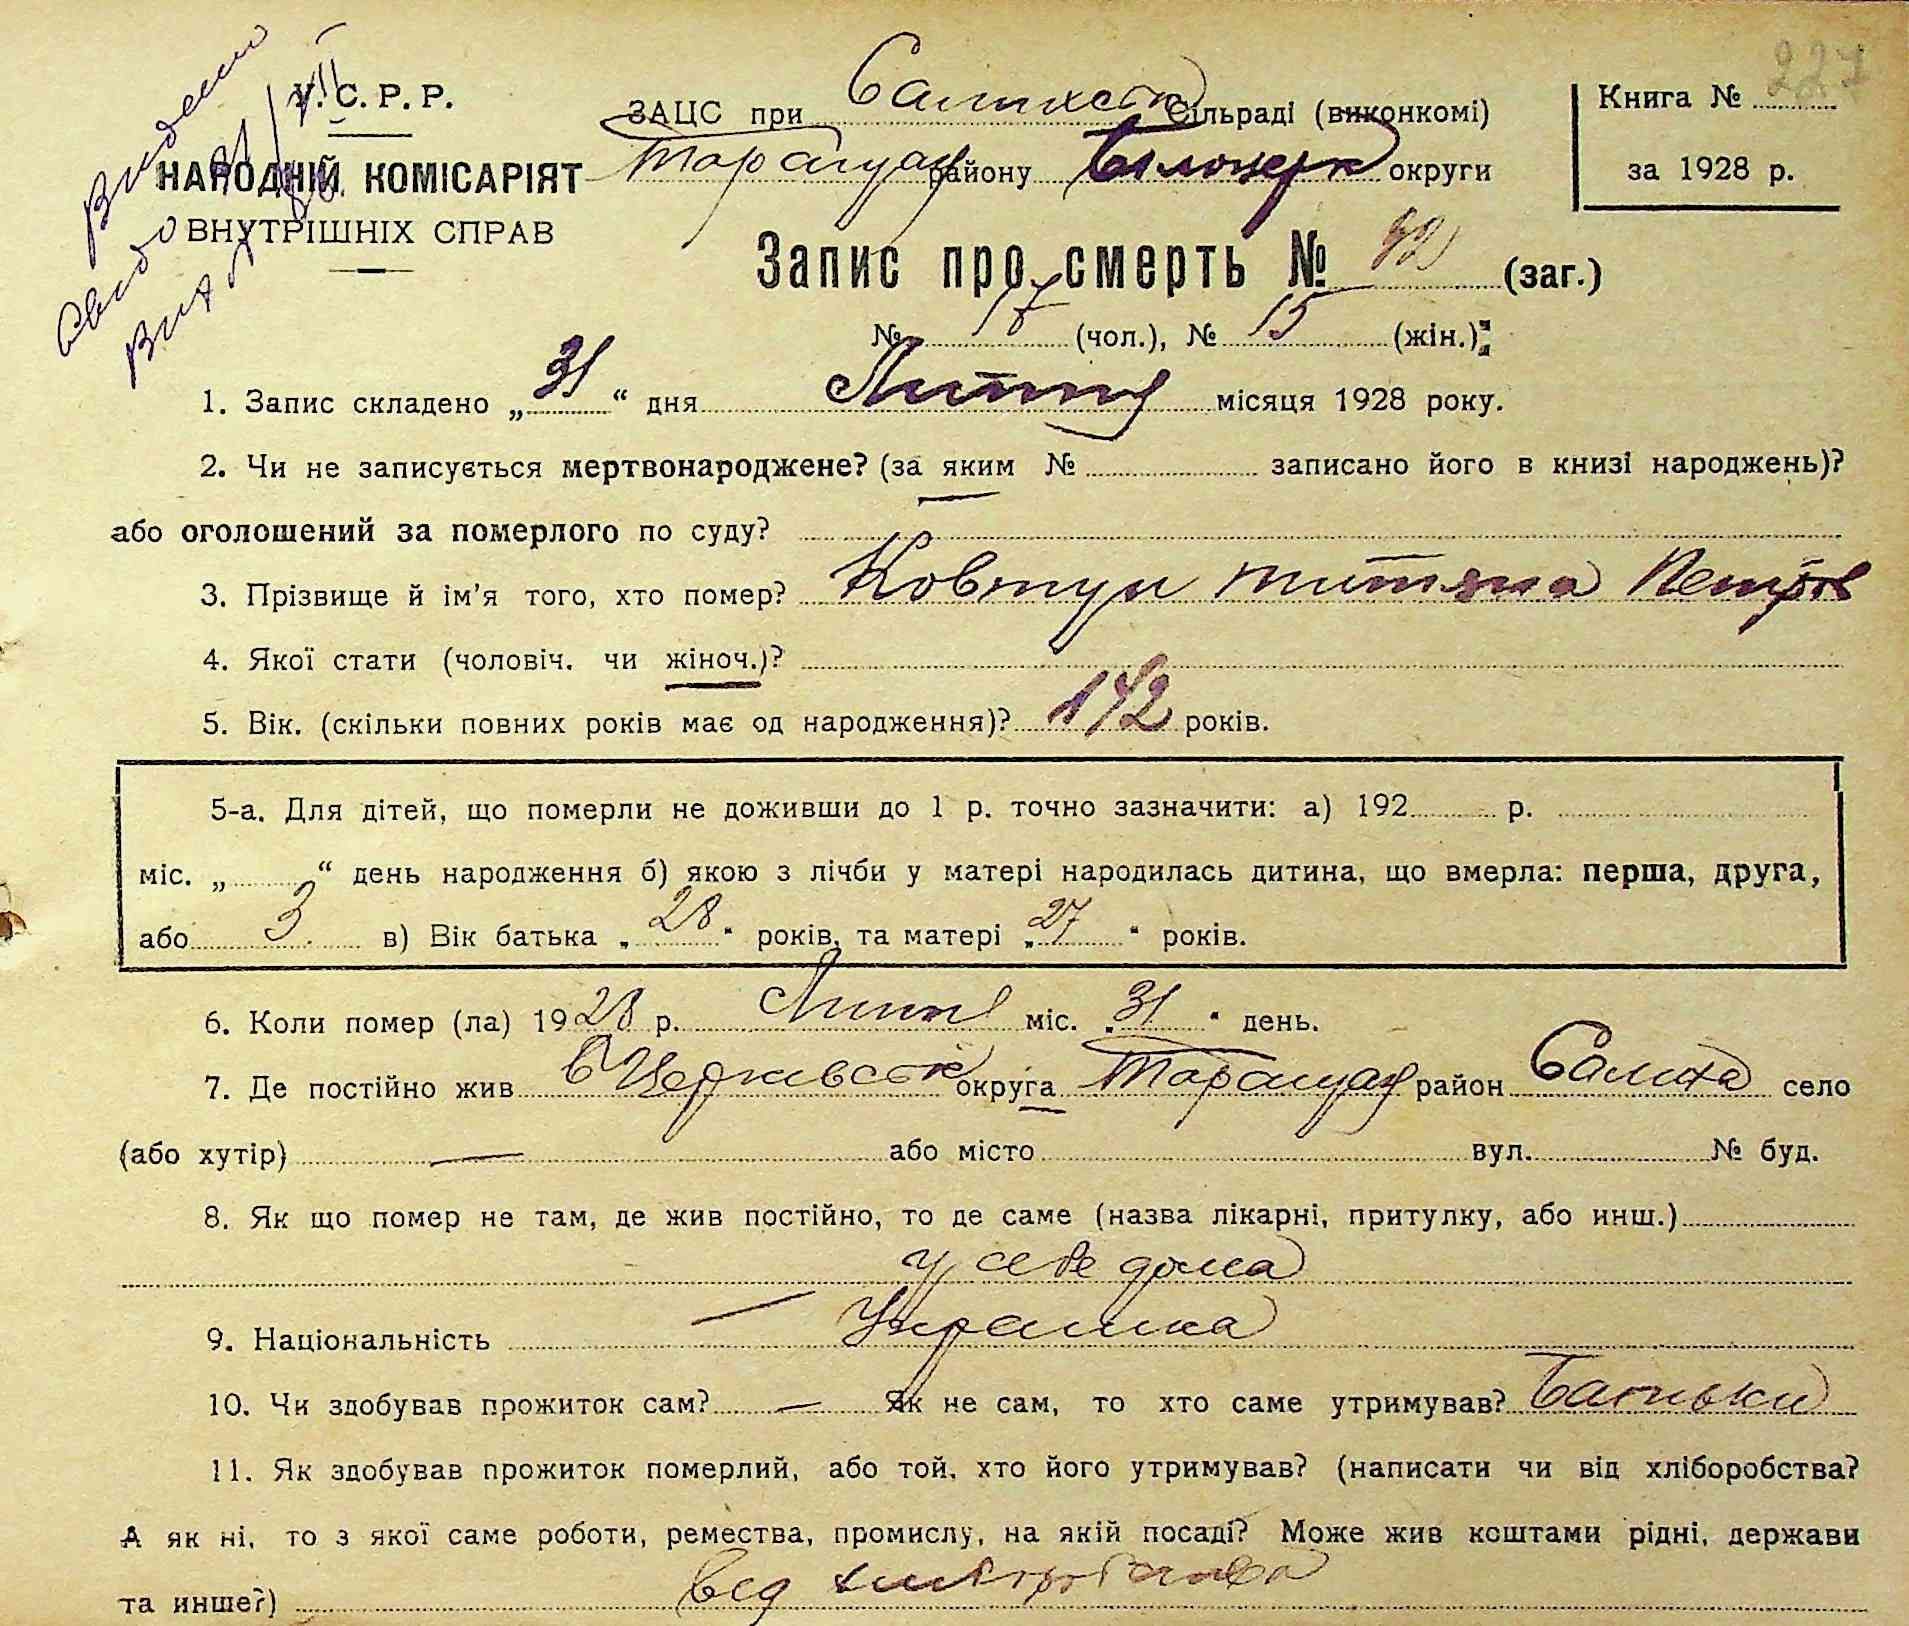 227
Видано
У. С. Р. Р.
ЗАЦС при Салихськ Сільраді (виконкомі)
Книга №
НАРОДНІЙ КОМІСАРІЯТ
Таращан району Білоцерк округи
за 1928 р.
ВНУТРІШНІХ СПРАВ
Запис про смерть № 32 (заг.)
№ 17 (чол.), № 15 (жін.)
1. Запис складено „31“ дня Липня місяця 1928 року.
2. Чи не записується мертвонароджене? (за яким № записано його в книзі народжень)?
або оголошений за померлого по суду?
3. Прізвище й ім'я того, хто помер? Ковтун Титяна Петров
4. Якої стати (чоловіч. чи жіноч.)?
5. Вік. (скільки повних років має од народження)? 1 1/2 років.
5-а. Для дітей, що померли не доживши до 1 р. точно зазначити: а) 192 р.
міс. „ “ день народження б) якою з лічби у матері народилась дитина, що вмерла: перша, друга,
або 3 в) Вік батька „28“ років, та матері „27“ років.
6. Коли помер (ла) 1928 р. Липня міс. „31“ день.
7. Де постійно жив Б Церківськ округа Таращан район Салиха село
(або хутір) — або місто вул. № буд.
8. Як що помер не там, де жив постійно, то де саме (назва лікарні, притулку, або инш.)
у себе дома
9. Національність — Украинка
10. Чи здобував прожиток сам? — Як не сам, то хто саме утримував? Батьки
11. Як здобував прожиток померлий, або той, хто його утримував? (написати чи від хліборобства?
А як ні, то з якої саме роботи, ремества, промислу, на якій посаді? Може жив коштами рідні, держави
та инше?) від хліборобства